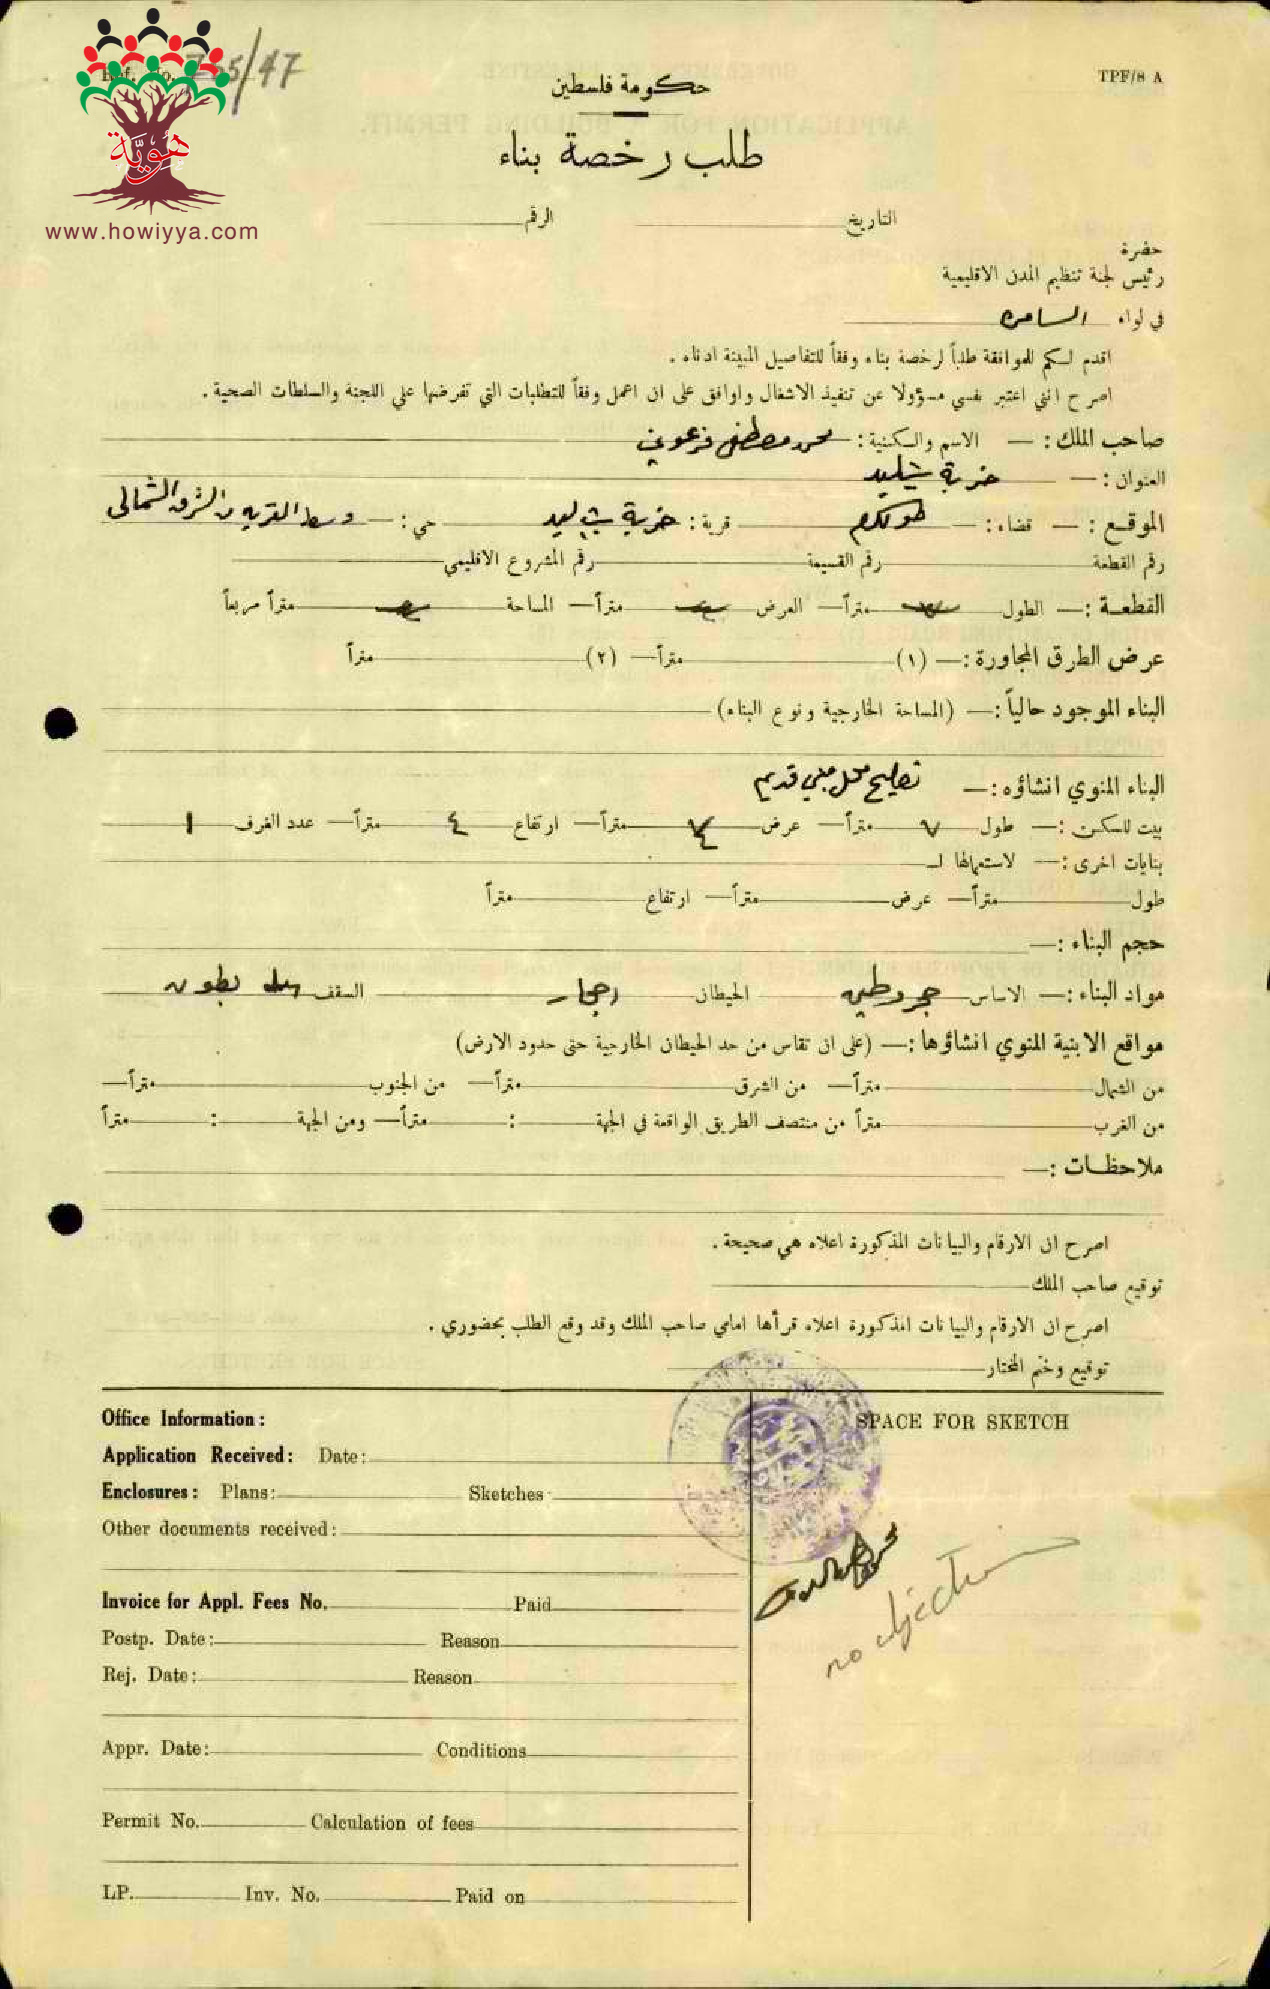 Ref. No. /47
TPF/8 A
هوية
www.howiyya.com
حكومة فلسطين
طلب رخصة بناء
التاريخ الرقم
حضرة
رئيس لجنة تنظيم المدن الاقليمية
في لواء السامره
اقدم لكم للموافقة طلباً لرخصة بناء وفقاً للتفاصيل المبينة ادناه .
اصرح انني اعتبر نفسي مسؤولا عن تنفيذ الاشغال واوافق على ان اعمل وفقاً للمتطلبات التي تفرضها علي اللجنة والسلطات الصحية .
صاحب الملك : — الاسم والكنية : — محمد مصطفى فرعوني
العنوان : — خربة
الموقع : — قضاء : — طولكرم قرية : خربة حي : — وسط القريه من الشرق الشمالي
رقم القطعة رقم القسيمة رقم المشروع الاقليمي
القطعة : — الطول متراً — العرض متراً — المساحة متراً مربعاً
عرض الطرق المجاورة : — (١) متراً — (٢) متراً
البناء الموجود حالياً : — (المساحة الخارجية ونوع البناء)
البناء المنوي انشاؤه : — تصليح محل مبني قديم
بيت للسكن : — طول ٧ متراً — عرض متراً — ارتفاع ٤ متراً — عدد الغرف ١
بنايات اخرى : — لاستعمالها لـ
طول متراً — عرض متراً — ارتفاع متراً
حجم البناء : —
مواد البناء : — الاساس الحيطان احجار السقف
مواقع الابنية المنوي انشاؤها : — (على ان تقاس من حد الحيطان الخارجية حتى حدود الارض)
من الشمال متراً — من الشرق متراً — من الجنوب متراً —
من الغرب متراً من منتصف الطريق الواقعة في الجهة : متراً — ومن الجهة : متراً
ملاحظات : —
اصرح ان الارقام والبيانات المذكورة اعلاه هي صحيحة .
توقيع صاحب الملك
اصرح ان الارقام والبيانات المذكورة اعلاه قرأها امامي صاحب الملك وقد وقع الطلب بحضوري .
توقيع وختم المختار
Office Information :
Application Received : Date :
Enclosures : Plans : Sketches
Other documents received :
Invoice for Appl. Fees No. Paid
Postp. Date : Reason
Rej. Date : Reason
Appr. Date : Conditions
Permit No. Calculation of fees
LP. Inv. No. Paid on
SPACE FOR SKETCH
no objection